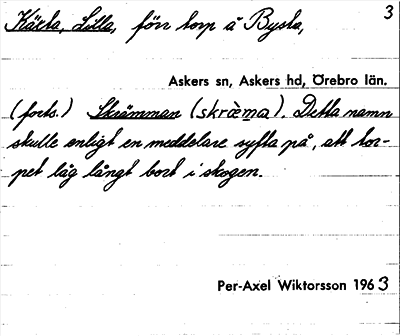 3
Käcka, Lilla, förr torp å Bysta,
Askers sn, Askers hd, Örebro län.
(forts.) Skrämman (skrὲma). Detta namn
skulle enligt en meddelare syfta på, att tor-
pet låg långt bort i skogen.
Per-Axel Wiktorsson 1963